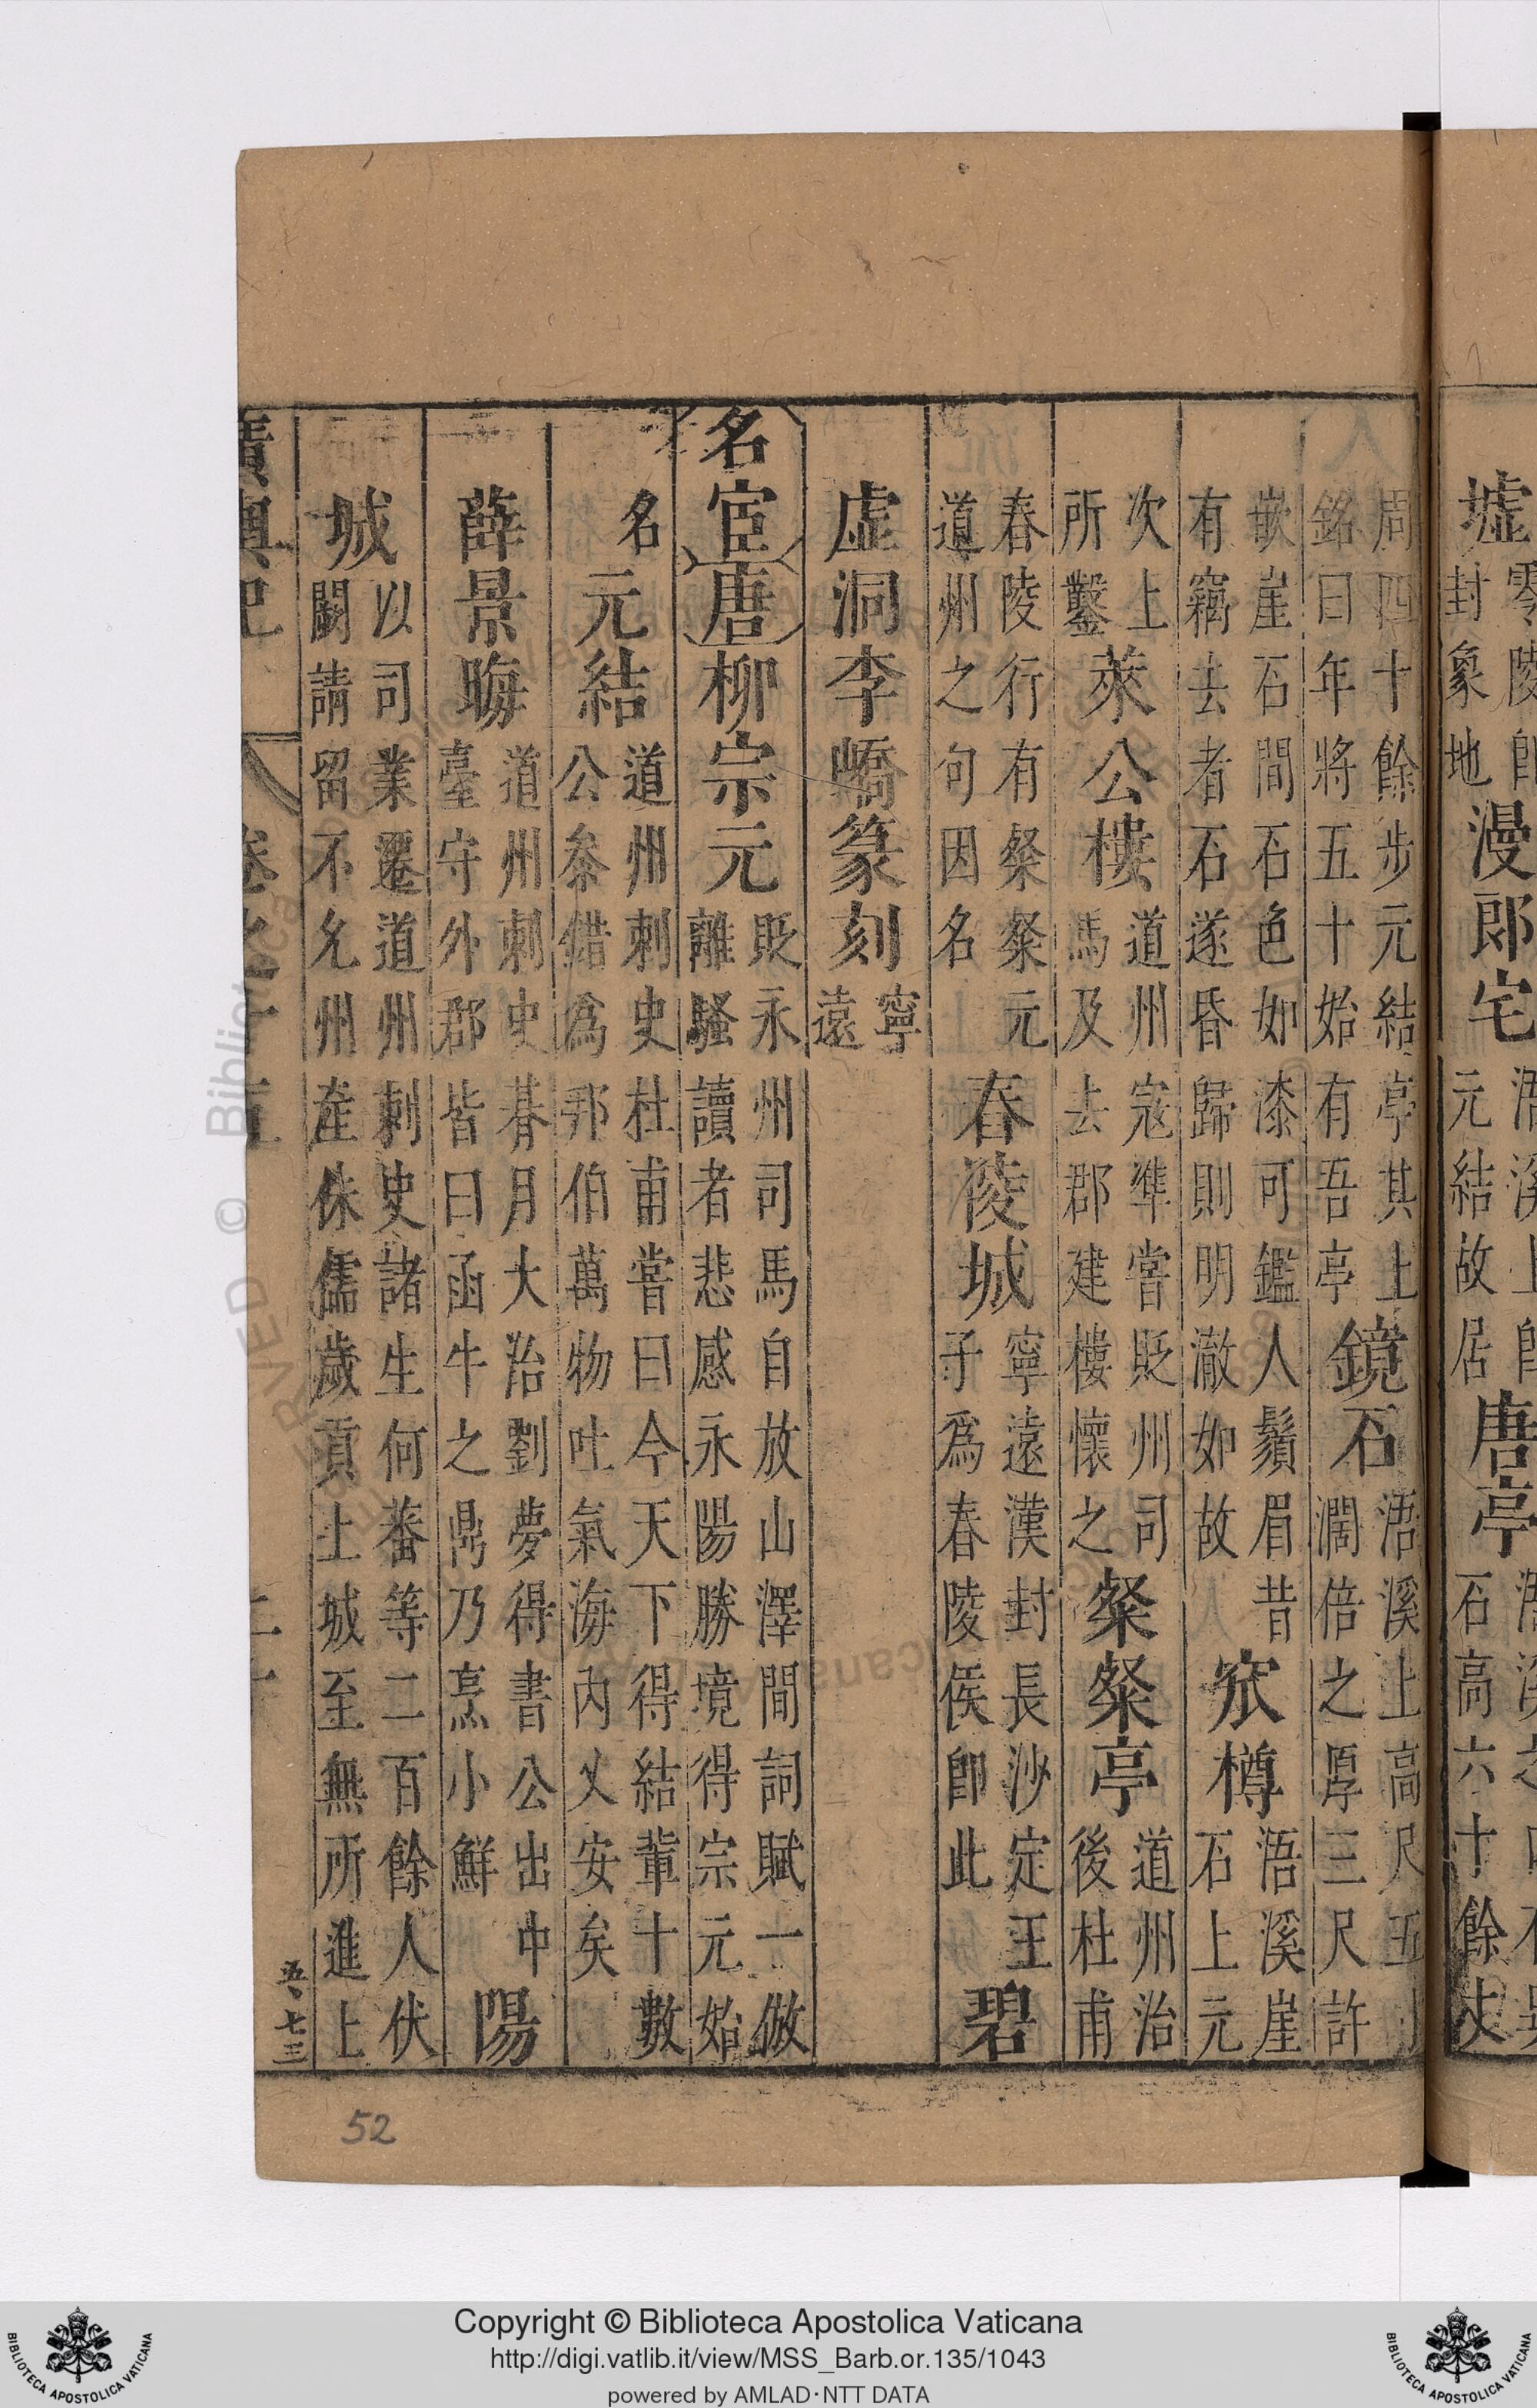 墟封象地漫郎宅元結故居唐亭石高六十餘丈
周四十餘步元結亭其上銘曰年將五十始有吾亭鏡石浯溪上高尺五寸濶倍之厚三尺許
嵌崖石間石色如漆可鑑人鬚眉昔有竊去者石遂昏歸則明澈如故窊樽浯溪崖石上元
次上所鑿萊公樓道州寇準嘗貶州司馬及去郡建樓懷之粲粲亭道州治後杜甫
舂陵行有粲粲元道州之句因名舂陵城寧遠漢封長沙定王子爲舂陵侯卽此碧
虛洞李嶠篆刻寧遠
名宦唐柳宗元貶永州司馬自放山澤間詞賦一倣離騷讀者悲感永陽勝境得宗元始
名元結道州刺史杜甫嘗曰今天下得結輩十數公叅錯爲邦伯萬物吐氣海內乂安矣
薛景晦道州刺史朞月大治劉夢得書公出中臺守外郡皆曰函牛之鼎乃烹小鮮陽
城以司業遷道州刺史諸生何蕃等二百餘人伏闕請留不允州產侏儒歲貢上城至無所進上
廣輿記
五、七三
52
Copyright © Biblioteca Apostolica Vaticana
http://digi.vatlib.it/view/MSS_Barb.or.135/1043
powered by AMLAD·NTT DATA
BIBLIOTECA APOSTOLICA VATICANA
BIBLIOTECA APOSTOLICA VATICANA